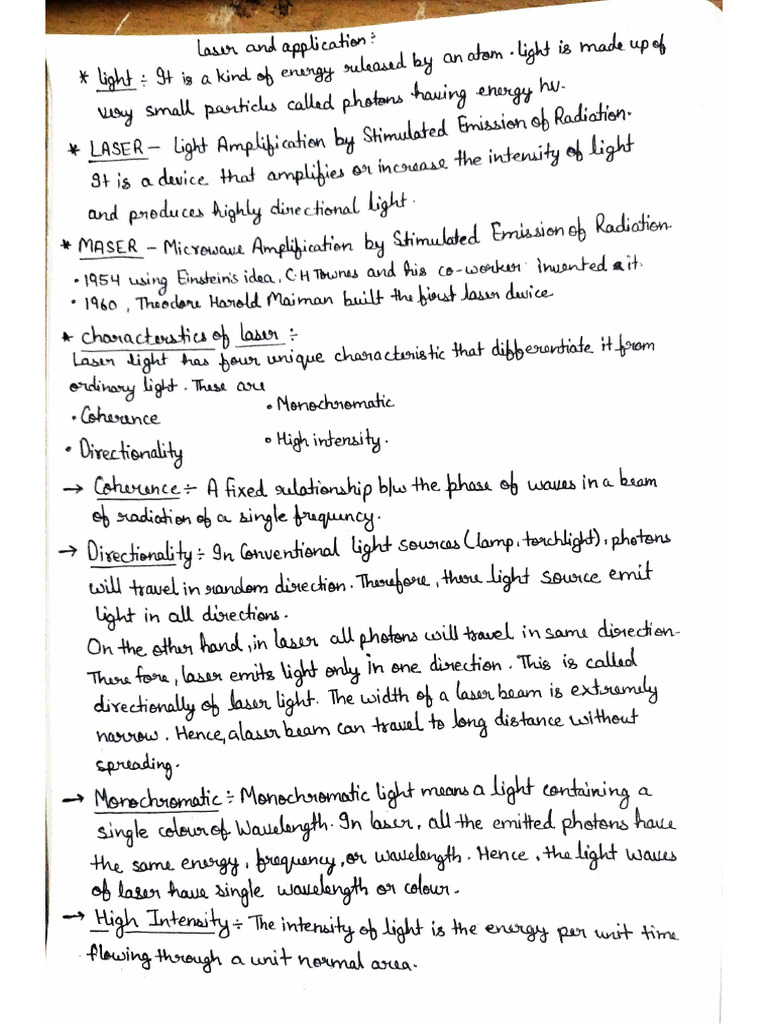 Laser and application :-
* Light :- It is a kind of energy released by an atom. light is made up of
very small particles called photons having energy hν.
* LASER - Light Amplification by Stimulated Emission of Radiation.
It is a device that amplifies or increase the intensity of light
and produces highly directional light.
* MASER - Microwave Amplification by Stimulated Emission of Radiation.
• 1954 using Einstein's idea, C.H Townes and his co-worker invented it.
• 1960, Theodore Harold Maiman built the first laser device
* Characterstics of laser :-
Laser light has four unique characteristic that differentiate it from
ordinary light. These are
• Coherence • Monochromatic
• Directionality • High intensity.
→ Coherence :- A fixed relationship b/w the phase of waves in a beam
of radiation of a single frequency.
→ Directionality :- In Conventional light sources (lamp, torchlight), photons
will travel in random direction. Therefore, there light source emit
light in all directions.
On the other hand, in laser all photons will travel in same direction-
There fore, laser emits light only in one direction. This is called
directionally of laser light. The width of a laser beam is extremely
narrow. Hence, a laser beam can travel to long distance without
spreading.
→ Monochromatic :- Monochromatic light means a light containing a
single colour of Wavelength. In laser, all the emitted photons have
the same energy, frequency, or wavelength. Hence, the light waves
of laser have single wavelength or colour.
→ High Intensity :- The intensity of light is the energy per unit time
flowing through a unit normal area.